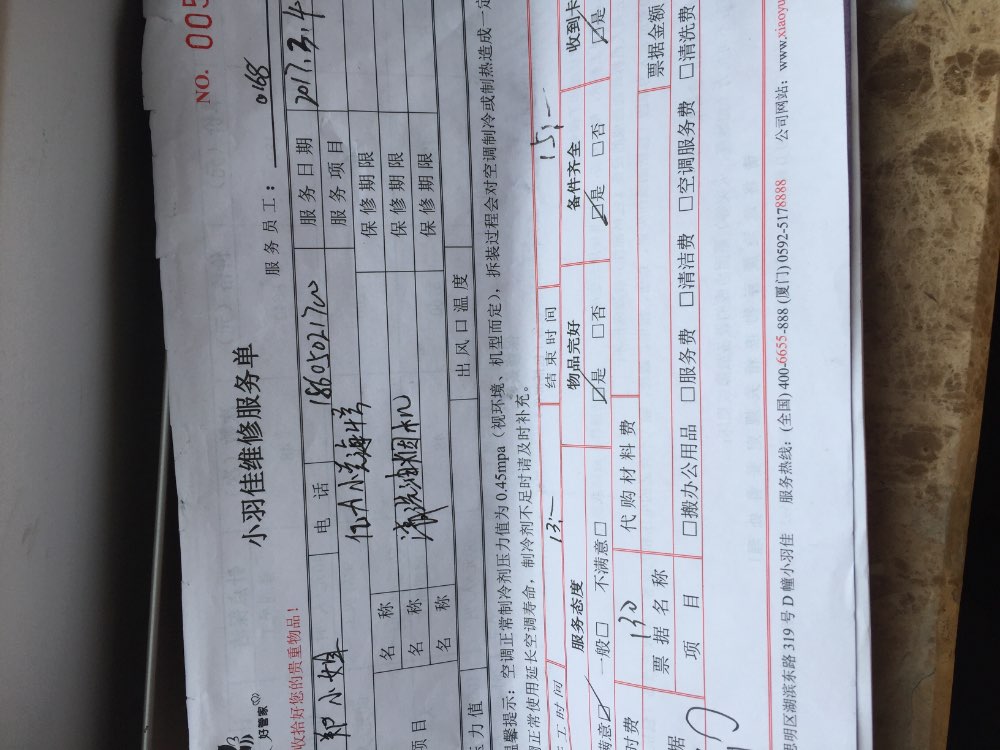 好管家
小羽佳维修服务单
NO. 005
收拾好您的贵重物品!
服务员工: 0168
郑小姐 电话 18605021700 服务日期 2017.3.4
服务项目
名称 保修期限
项目 名称 清洗油烟机 保修期限
名称 保修期限
压力值 出风口温度
温馨提示: 空调正常制冷剂压力值为0.45mpa(视环境、机型而定), 拆装过程会对空调制冷或制热造成一定
正常使用延长空调寿命, 制冷剂不足时请及时补充。
工时间 13:— 结束时间 15:—
服务态度 物品完好 备件齐全 收到卡
满意☑ 一般□ 不满意□ ☑是 □否 ☑是 □否 ☑是
时费 130 代购材料费
据 票据名称 票据金额
项目 □搬办公用品 □服务费 □清洁费 □空调服务费 □清洗费
思明区湖滨东路319号D幢小羽佳 服务热线: (全国) 400-6655-888 (厦门) 0592-5178888 公司网站: www.xiaoyu